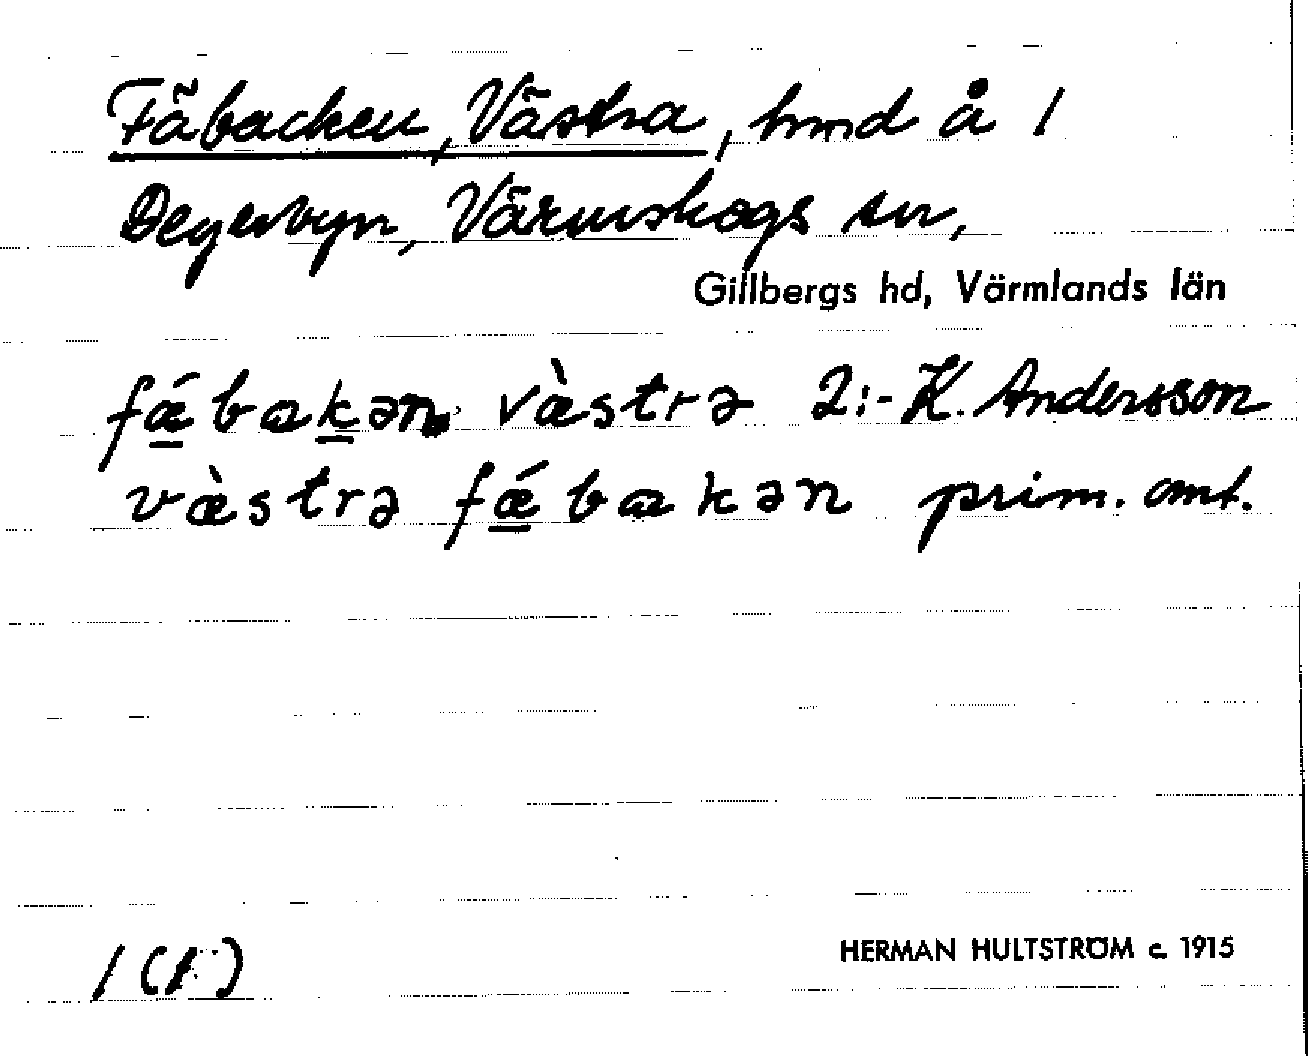 Fäbacken, Västra, hmd å 1
Degerbyn, Värmskogs sn,
Gillbergs hd, Värmlands län
fǽbakən væ̀strə 2:- K. Andersson
væ̀strə fǽbakən prim. ant.
1 (1)
HERMAN HULTSTRÖM c. 1915